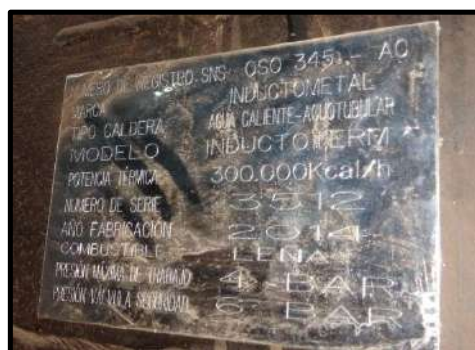 NUMERO DE REGISTRO SNS OSO 345.- AC
MARCA INDUCTOMETAL
TIPO CALDERA AGUA CALIENTE-ACUOTUBULAR
MODELO INDUCTOTERM
POTENCIA TÉRMICA 300.000Kcal/h
NUMERO DE SERIE 3512
AÑO FABRICACIÓN 2014
COMBUSTIBLE LEÑA
PRESIÓN MÁXIMA DE TRABAJO 4 BAR
PRESIÓN VÁLVULA SEGURIDAD 6 BAR